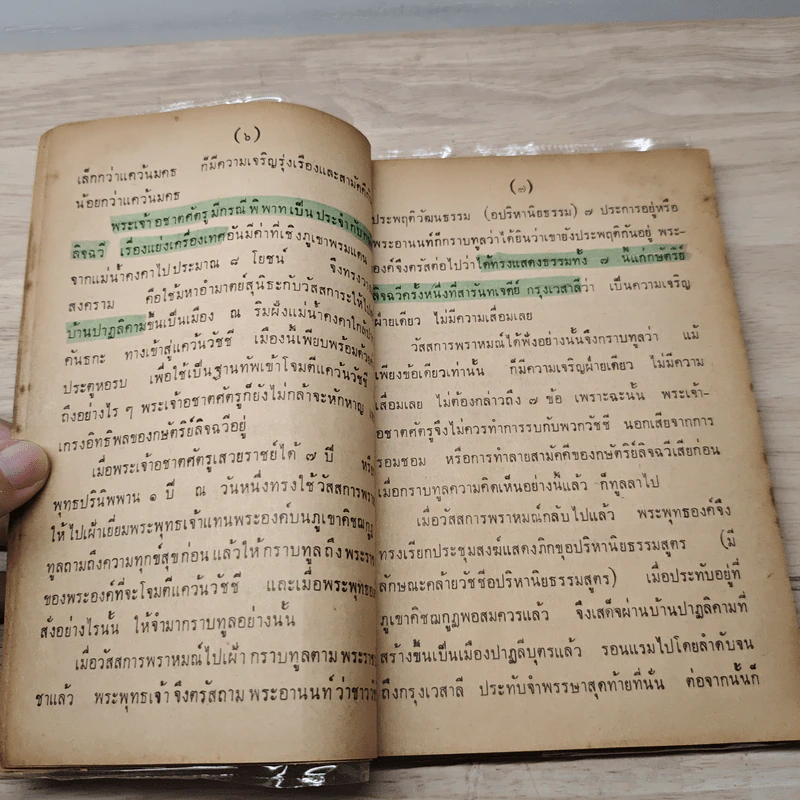 (๖)
เล็กกว่าแคว้นมคธ ก็มีความเจริญรุ่งเรืองและสามัคคี
น้อยกว่าแคว้นมคธ
พระเจ้าอชาตศัตรูมีกรณีพิพาทเป็นประจำกับ
ลิจฉวี เรื่องแย่งเครื่องเทศอันมีค่าที่เชิงภูเขาพรมแดน
จากแม่น้ำคงคาไปประมาณ ๘ โยชน์ จึงทรง
สงคราม คือใช้มหาอำมาตย์สุนิธะกับวัสสการะให้ไป
บ้านปาฏลิคามขึ้นเป็นเมือง ณ ริมฝั่งแม่น้ำคงคา
คันธกะ ทางเข้าสู่แคว้นวัชชี เมืองนี้เพียบพร้อมด้วย
ประตูหอรบ เพื่อใช้เป็นฐานทัพเข้าโจมตีแคว้นวัชชี
ถึงอย่างไร ๆ พระเจ้าอชาตศัตรูก็ยังไม่กล้าจะหักหาญ
เกรงอิทธิพลของกษัตริย์ลิจฉวีอยู่
เมื่อพระเจ้าอชาตศัตรูเสวยราชย์ได้ ๗ ปี
พุทธปรินิพพาน ๑ ปี ณ วันหนึ่งทรงใช้วัสสการพรา
ให้ไปเฝ้าเยี่ยมพระพุทธเจ้าแทนพระองค์บนภูเขาคิชฌกูฏ
ทูลถามถึงความทุกข์สุขก่อน แล้วให้กราบทูลถึงพระรา
ของพระองค์ที่จะโจมตีแคว้นวัชชี และเมื่อพระพุทธ
สั่งอย่างไรนั้น ให้จำมากราบทูลอย่างนั้น
เมื่อวัสสการพราหมณ์ไปเฝ้า กราบทูลตามพระรา
ชาแล้ว พระพุทธเจ้าจึงตรัสถามพระอานนท์ว่าชาว
(๗)
ประพฤติวัฒนธรรม (อปริหานิยธรรม) ๗ ประการอยู่หรือ
พระอานนท์ก็กราบทูลว่าได้ยินว่าเขายังประพฤติกันอยู่ พระ-
องค์จึงตรัสต่อไปว่าได้ทรงแสดงธรรมทั้ง ๗ นี้แก่กษัตริย์
ลิจฉวีครั้งหนึ่งที่สารันทเจดีย์ กรุงเวสาลีว่า เป็นความเจริญ
ฝ่ายเดียว ไม่มีความเสื่อมเลย
วัสสการพราหมณ์ได้ฟังอย่างนั้นจึงกราบทูลว่า แม้
เพียงข้อเดียวเท่านั้น ก็มีความเจริญฝ่ายเดียว ไม่มีความ
เสื่อมเลย ไม่ต้องกล่าวถึง ๗ ข้อ เพราะฉะนั้น พระเจ้า-
อชาตศัตรูจึงไม่ควรทำการรบกับพวกวัชชี นอกเสียจากการ
รอมชอม หรือการทำลายสามัคคีของกษัตริย์ลิจฉวีเสียก่อน
เมื่อกราบทูลความคิดเห็นอย่างนี้แล้ว ก็ทูลลาไป
เมื่อวัสสการพราหมณ์กลับไปแล้ว พระพุทธองค์จึง
ทรงเรียกประชุมสงฆ์แสดงภิกขุอปริหานิยธรรมสูตร (มี
ลักษณะคล้ายวัชชีอปริหานิยธรรมสูตร) เมื่อประทับอยู่ที่
ภูเขาคิชฌกูฏพอสมควรแล้ว จึงเสด็จผ่านบ้านปาฏลิคามที่
สร้างขึ้นเป็นเมืองปาฏลีบุตรแล้ว รอนแรมไปโดยลำดับจน
ถึงกรุงเวสาลี ประทับจำพรรษาสุดท้ายที่นั่น ต่อจากนั้นก็